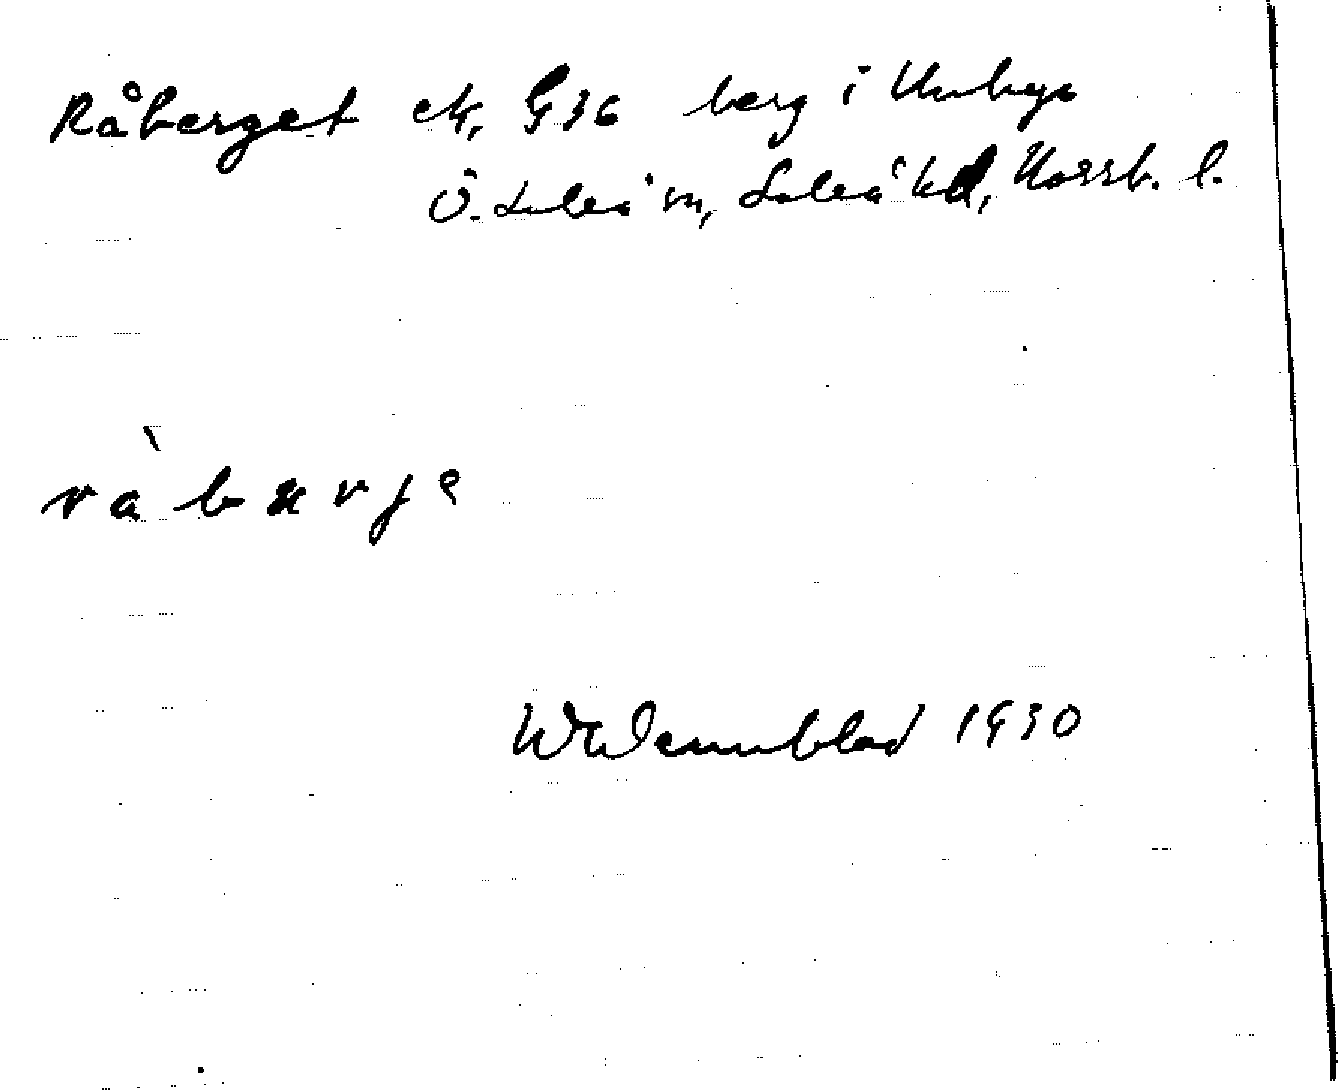 Råberget ek, G36 berg i Unbyn
Ö. Luleå sn, Luleå hd, Norrb. l.
ràbærjə
W Wennblad 1930